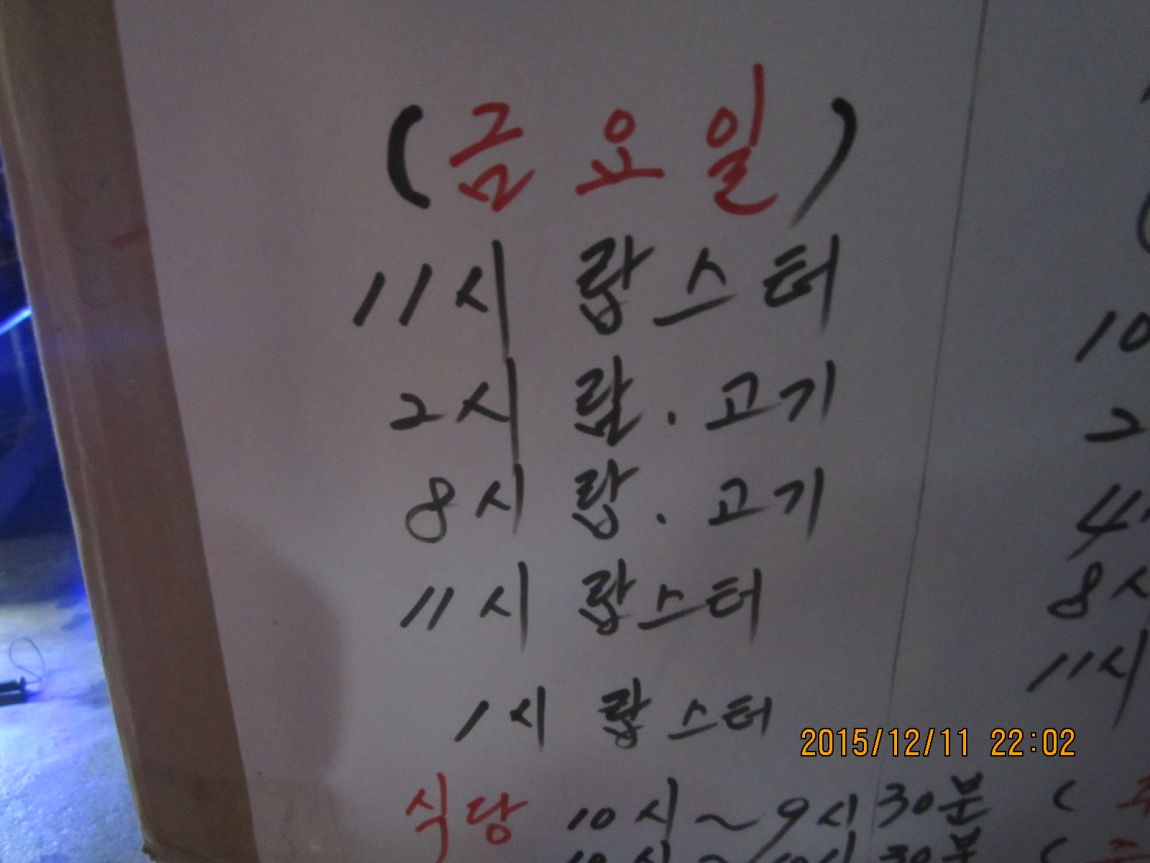 (금요일)
11시 랍스터
2시 랍.고기
8시 랍.고기
11시 랍스터
1시 랍스터
식당 10시~9시30분 (
10
2
4
8시
11시
2015/12/11 22:02